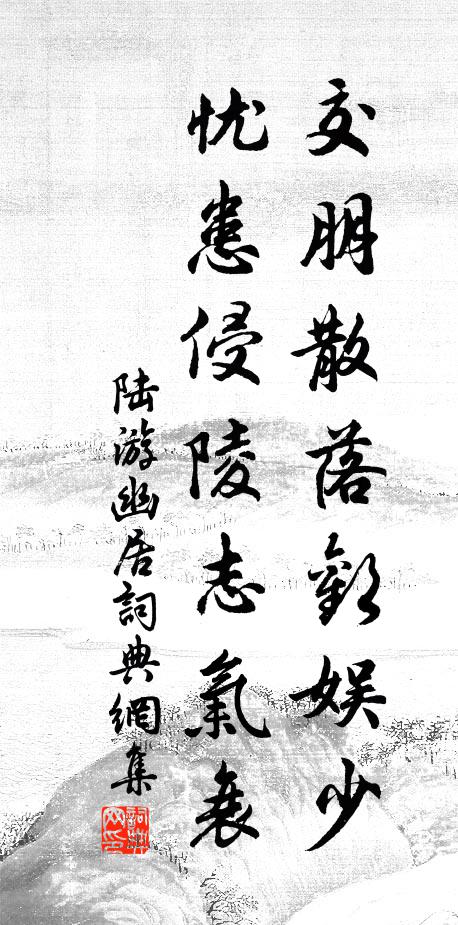 交朋散落歡娱少
忧患侵陵志氣衰
陆游幽居詞典網集